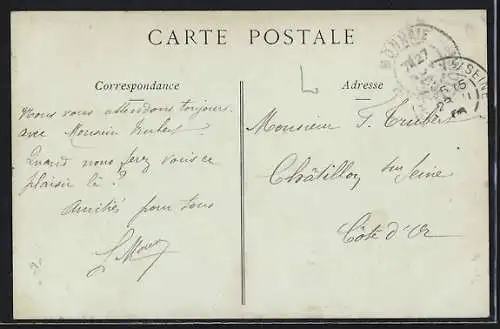 CARTE POSTALE
Correspondance
Adresse
Nous vous attendons toujours
avec Monsieur
Quand nous ferez vous ce
plaisir là ?
Amitiés pour tous
Monsieur
Châtillon sur Seine
Côte d'Or
MONNAIE
S/SEINE